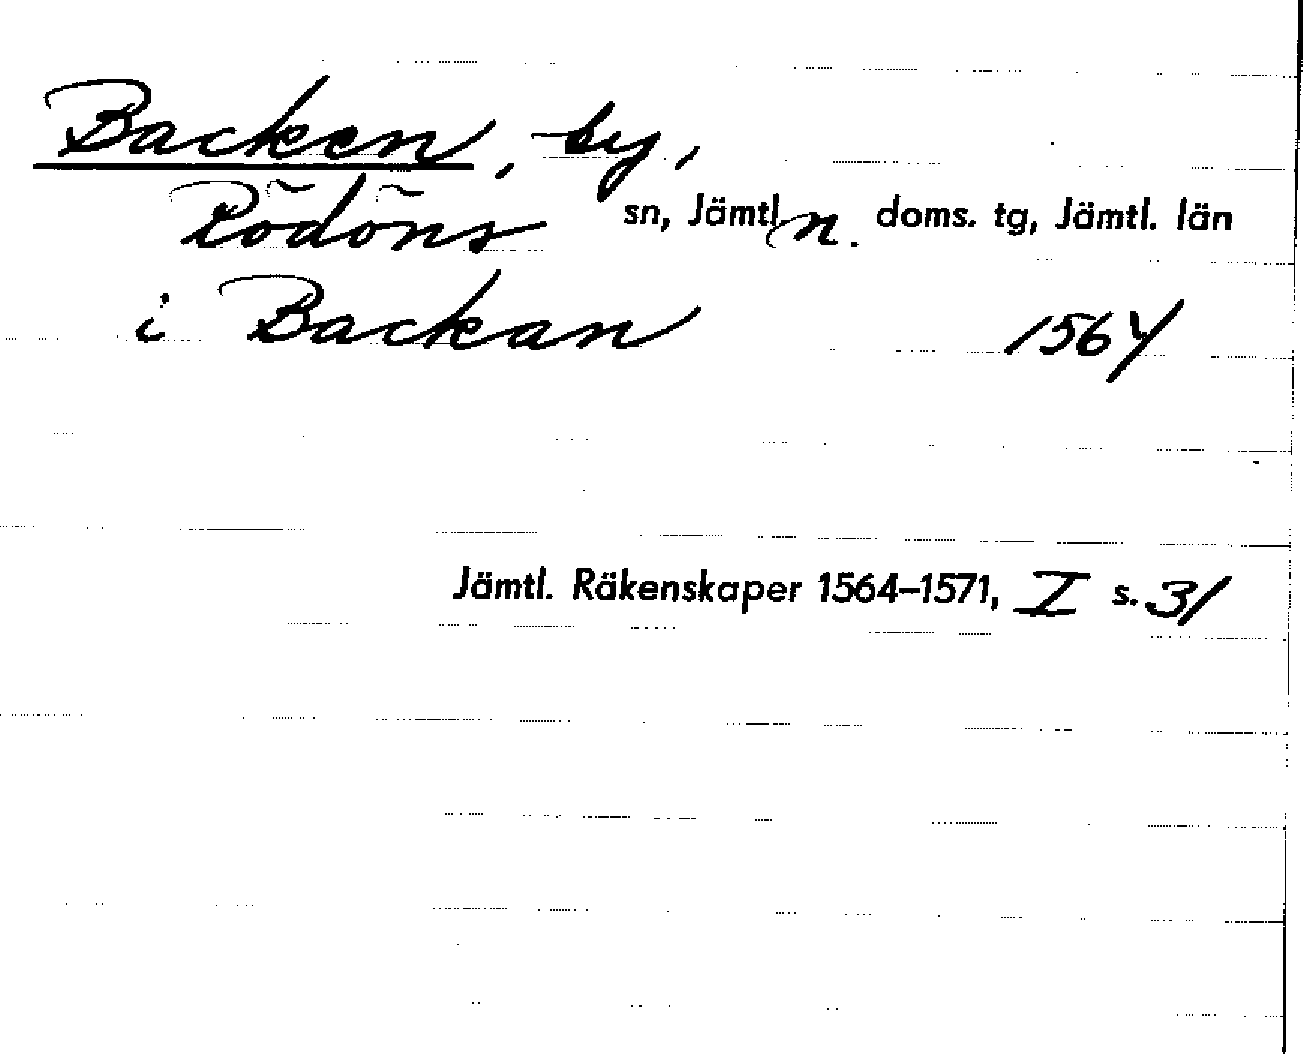 Backen, by,
Rödöns sn, Jämtl. n. doms. tg, Jämtl. län
i Backan 1564
Jämtl. Räkenskaper 1564–1571, I s. 31